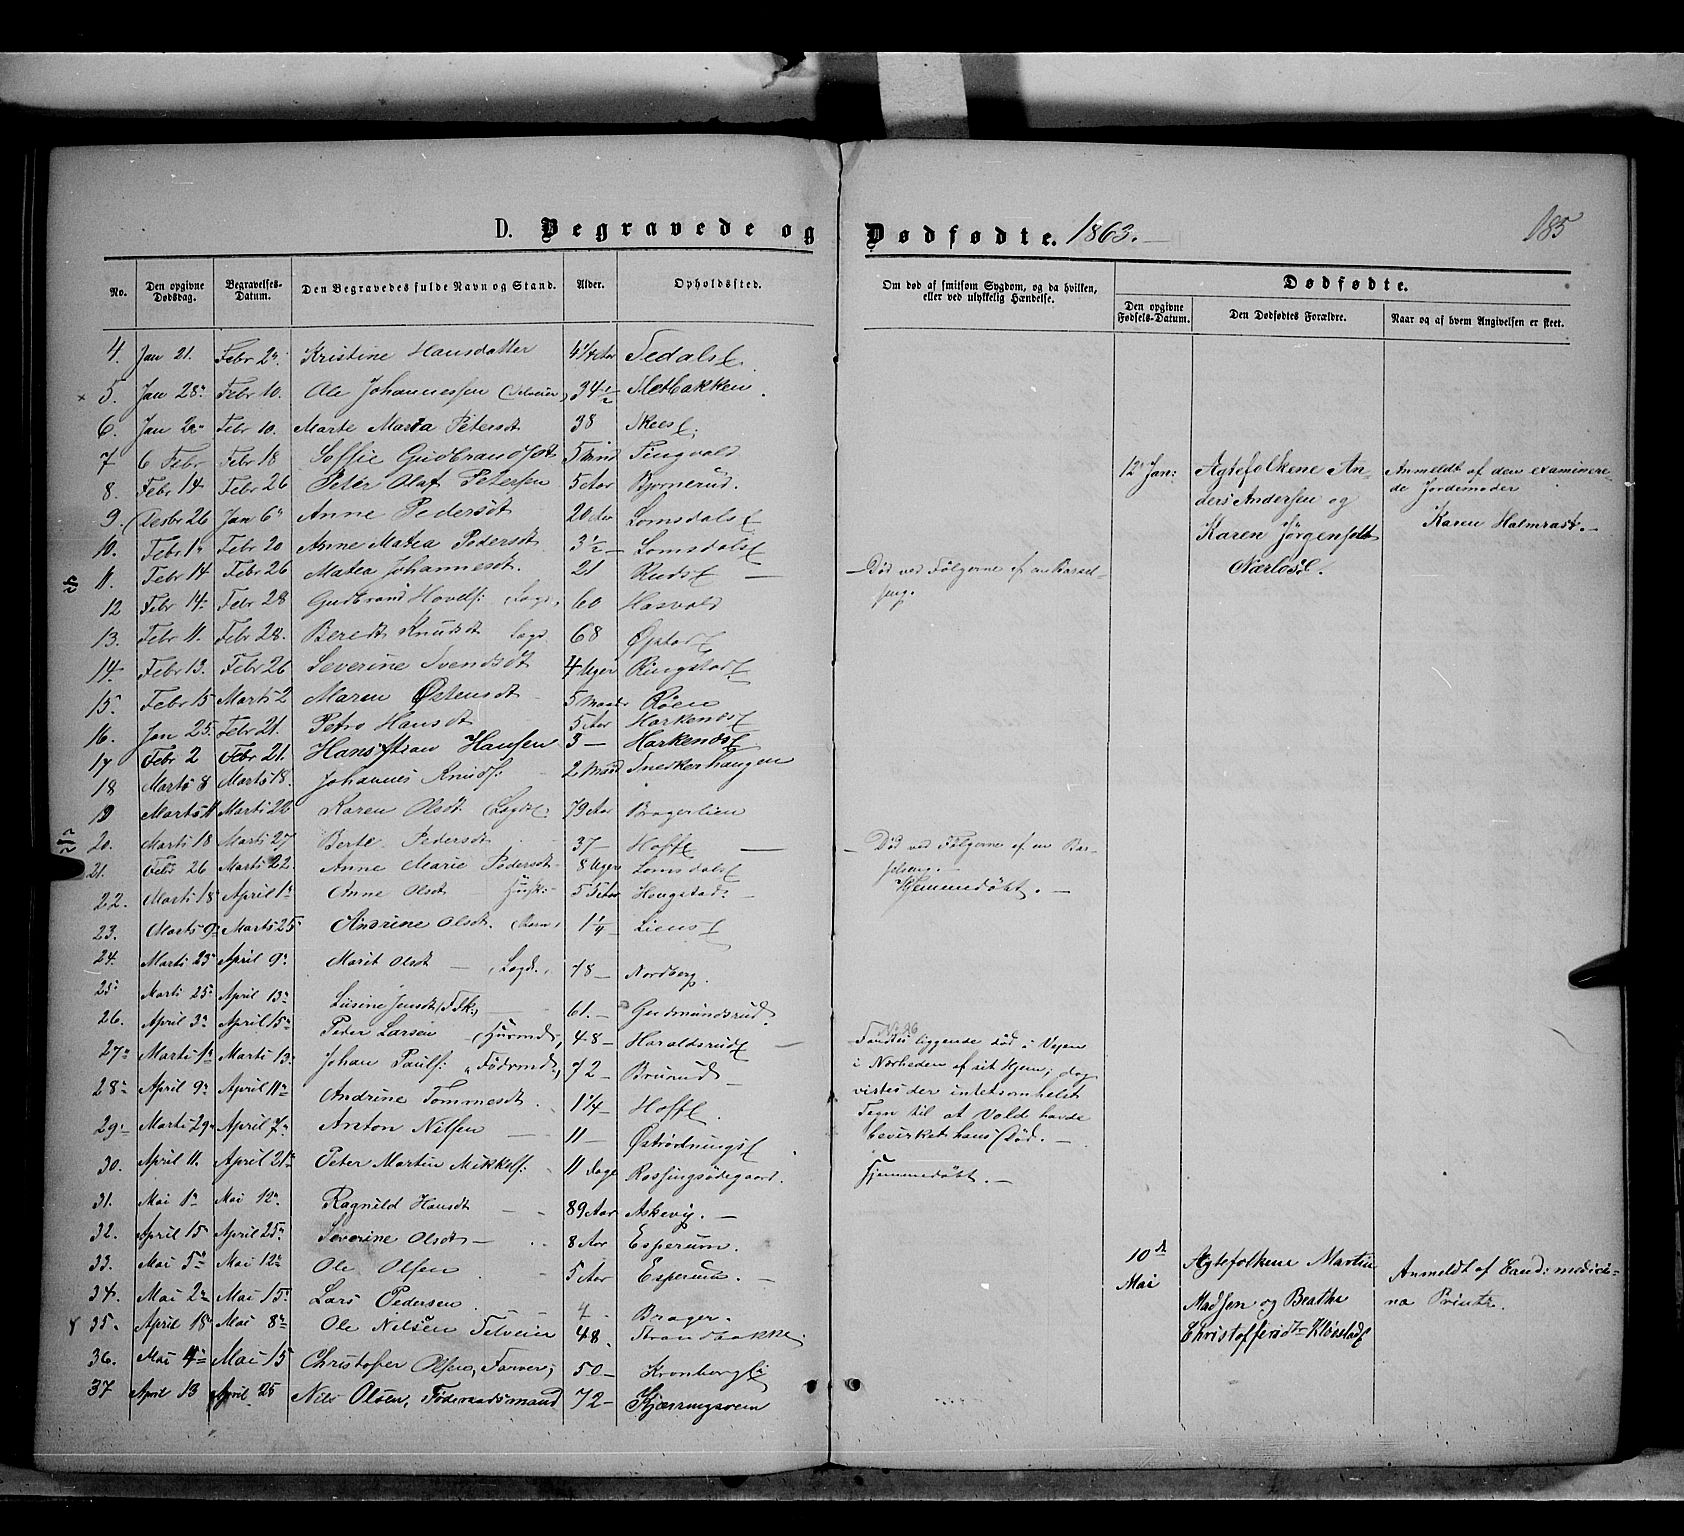 D. Begravede og Dødfødte. 1863.—
185
No.
Den opgivne Dødsdag.
Begravelses-Datum.
Den Begravedes fulde Navn og Stand.
Alder.
Opholdssted.
Om død af smitsom Sygdom, og da hvilken, eller ved ulykkelig Hændelse.
Dødfødte.
Den opgivne Fødsels-Datum.
Den Dødfødtes Forældre.
Naar og af hvem Angivelsen er skeet.
4. Jan 21. Febr 2 Kristine Hansdatter 4 1/4 Aar
5. Jan 28 Febr 10. Ole Johannessen 34 1/2
6. Jan 20 Febr 10. Marte Maria Petersdt 38
7 6 Febr Febr 18 Soffie Gudbrandsdt Tingvold
8. Febr 14 Febr 26 Peter Olaf Petersen 5 Aar Bjørnerud.
9. Desbr 26 Jan 6 Anne Pedersdt 20 Aar Lomsdalsf
10. Febr 1 Febr 20 Anne Matea Pedersdt 3 1/2 — Lomsdalsf
11. Febr 14 Febr 26 Matea Johannesdt. 21 Rudsf —
12 Febr 14 Febr 28 Gudbrand Hovels: Lægd. 60 Hasvold
13. Febr 11. Febr 28. Beret Knudsdt Lægd 68
14. Febr 13. Febr 26 Severine Svendsdt 4 Uger Ringstadf
15. Febr 15 Marts 2 Maren Østensdt 5 Maaner Røen
16. Jan 25. Febr 21. Petra Hansdt 5 Aar Harkendsf
17 Febr 2 Febr 21. Hans Hansen 3 — Harkendsf
18 Marts 8 Marts 18. Johannes Knuds: 2 Maan Snedkerhaugen
19 Marts 11 Marts 22 Karen Olsdt 79 Aar Bragerlien
20. Marts 18 Marts 27 Berte Pedersdt 37 — Hoff —
21. Feb 26 Marts 22. Anne Marie Pedersdt 8 Uger Lomsdalsf
22. Marts 18 April 1 Anne Olsdt 5
23. Marts 9 Marts 25 Andrine Olsdt. 1 1/4 Liensf
24. Marts 23 April 9 Marit Olsdt — Lægd. 78 — Nordberg.
25 Marts 25 April 13 Jensdt 61. — Gudmundsrud.
26. April 3 April 15 Peder Larsen — 48 — Haraldsrudf —
27 Marts 1 Marts 13 Johan Pauls: 72 — Bruruds —
28 April 9 April 11 Andrine Tommesdt 1 1/4 Hoff.
29 Marts 29 April 7 Anton Nilsen 11 —
30. April 11. April 21 Peter Martin Mikkels: 11 Dage
31. Mai 1 Mai 12 Ragnild Hansdt 89 Aar Askevig. —
32. April 15 April 25 Severine Olsdt — 8 Aar Esperum.
33. Mai 5 Mai 12 Ole Olsen 5 Aar Esperum. —
34. Mai 2 Mai 15 Lars Pedersen 4 — Brager.
35. April 18 Mai 8 Ole Nilsen Selveier 48. Strandbakken
36. Mai 4 Mai 15 Christofer Olsen, Farver; 50 —
37 April 13 April 25 Nils Olsen, Føderaadsmand 72 —
— Død ved Følgerne af en Barsel-
seng.
— Død ved Følgerne af en Bar-
selseng. —
Hjemmedøbt. —
No 26
Fandtes liggende død i Veien
i Nærheden af sit Hjem; dog
vistes der intetsomhelst
Tegn til at Vold havde
bevirket hans Død. —
Hjemmedøbt. —
12 Jan:
Ægtefolkene An-
ders Andersen og
Karen Jørgensdt
Anmeldt af den examinere-
de Jordemoder
Karen Halmrast. —
10 de
Mai
Ægtefolkene Martin
Madsen og Beathe
Christoffersdtr
Anmeldt af Cand: medici-
næ Printz.